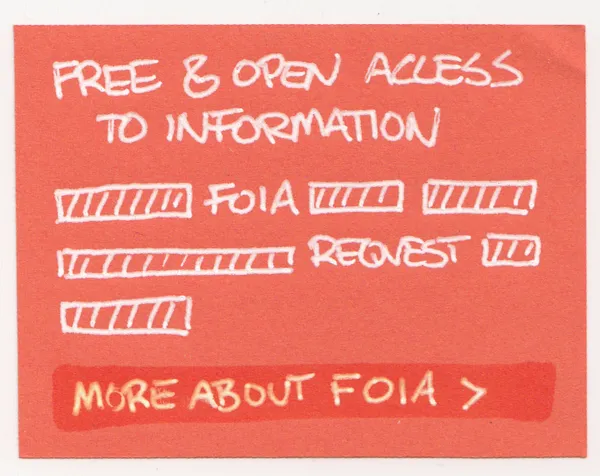 FREE & OPEN ACCESS
TO INFORMATION
FOIA
REQUEST
MORE ABOUT FOIA >